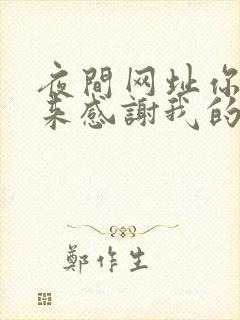 夜間网址你
来感謝我的
鄭作生